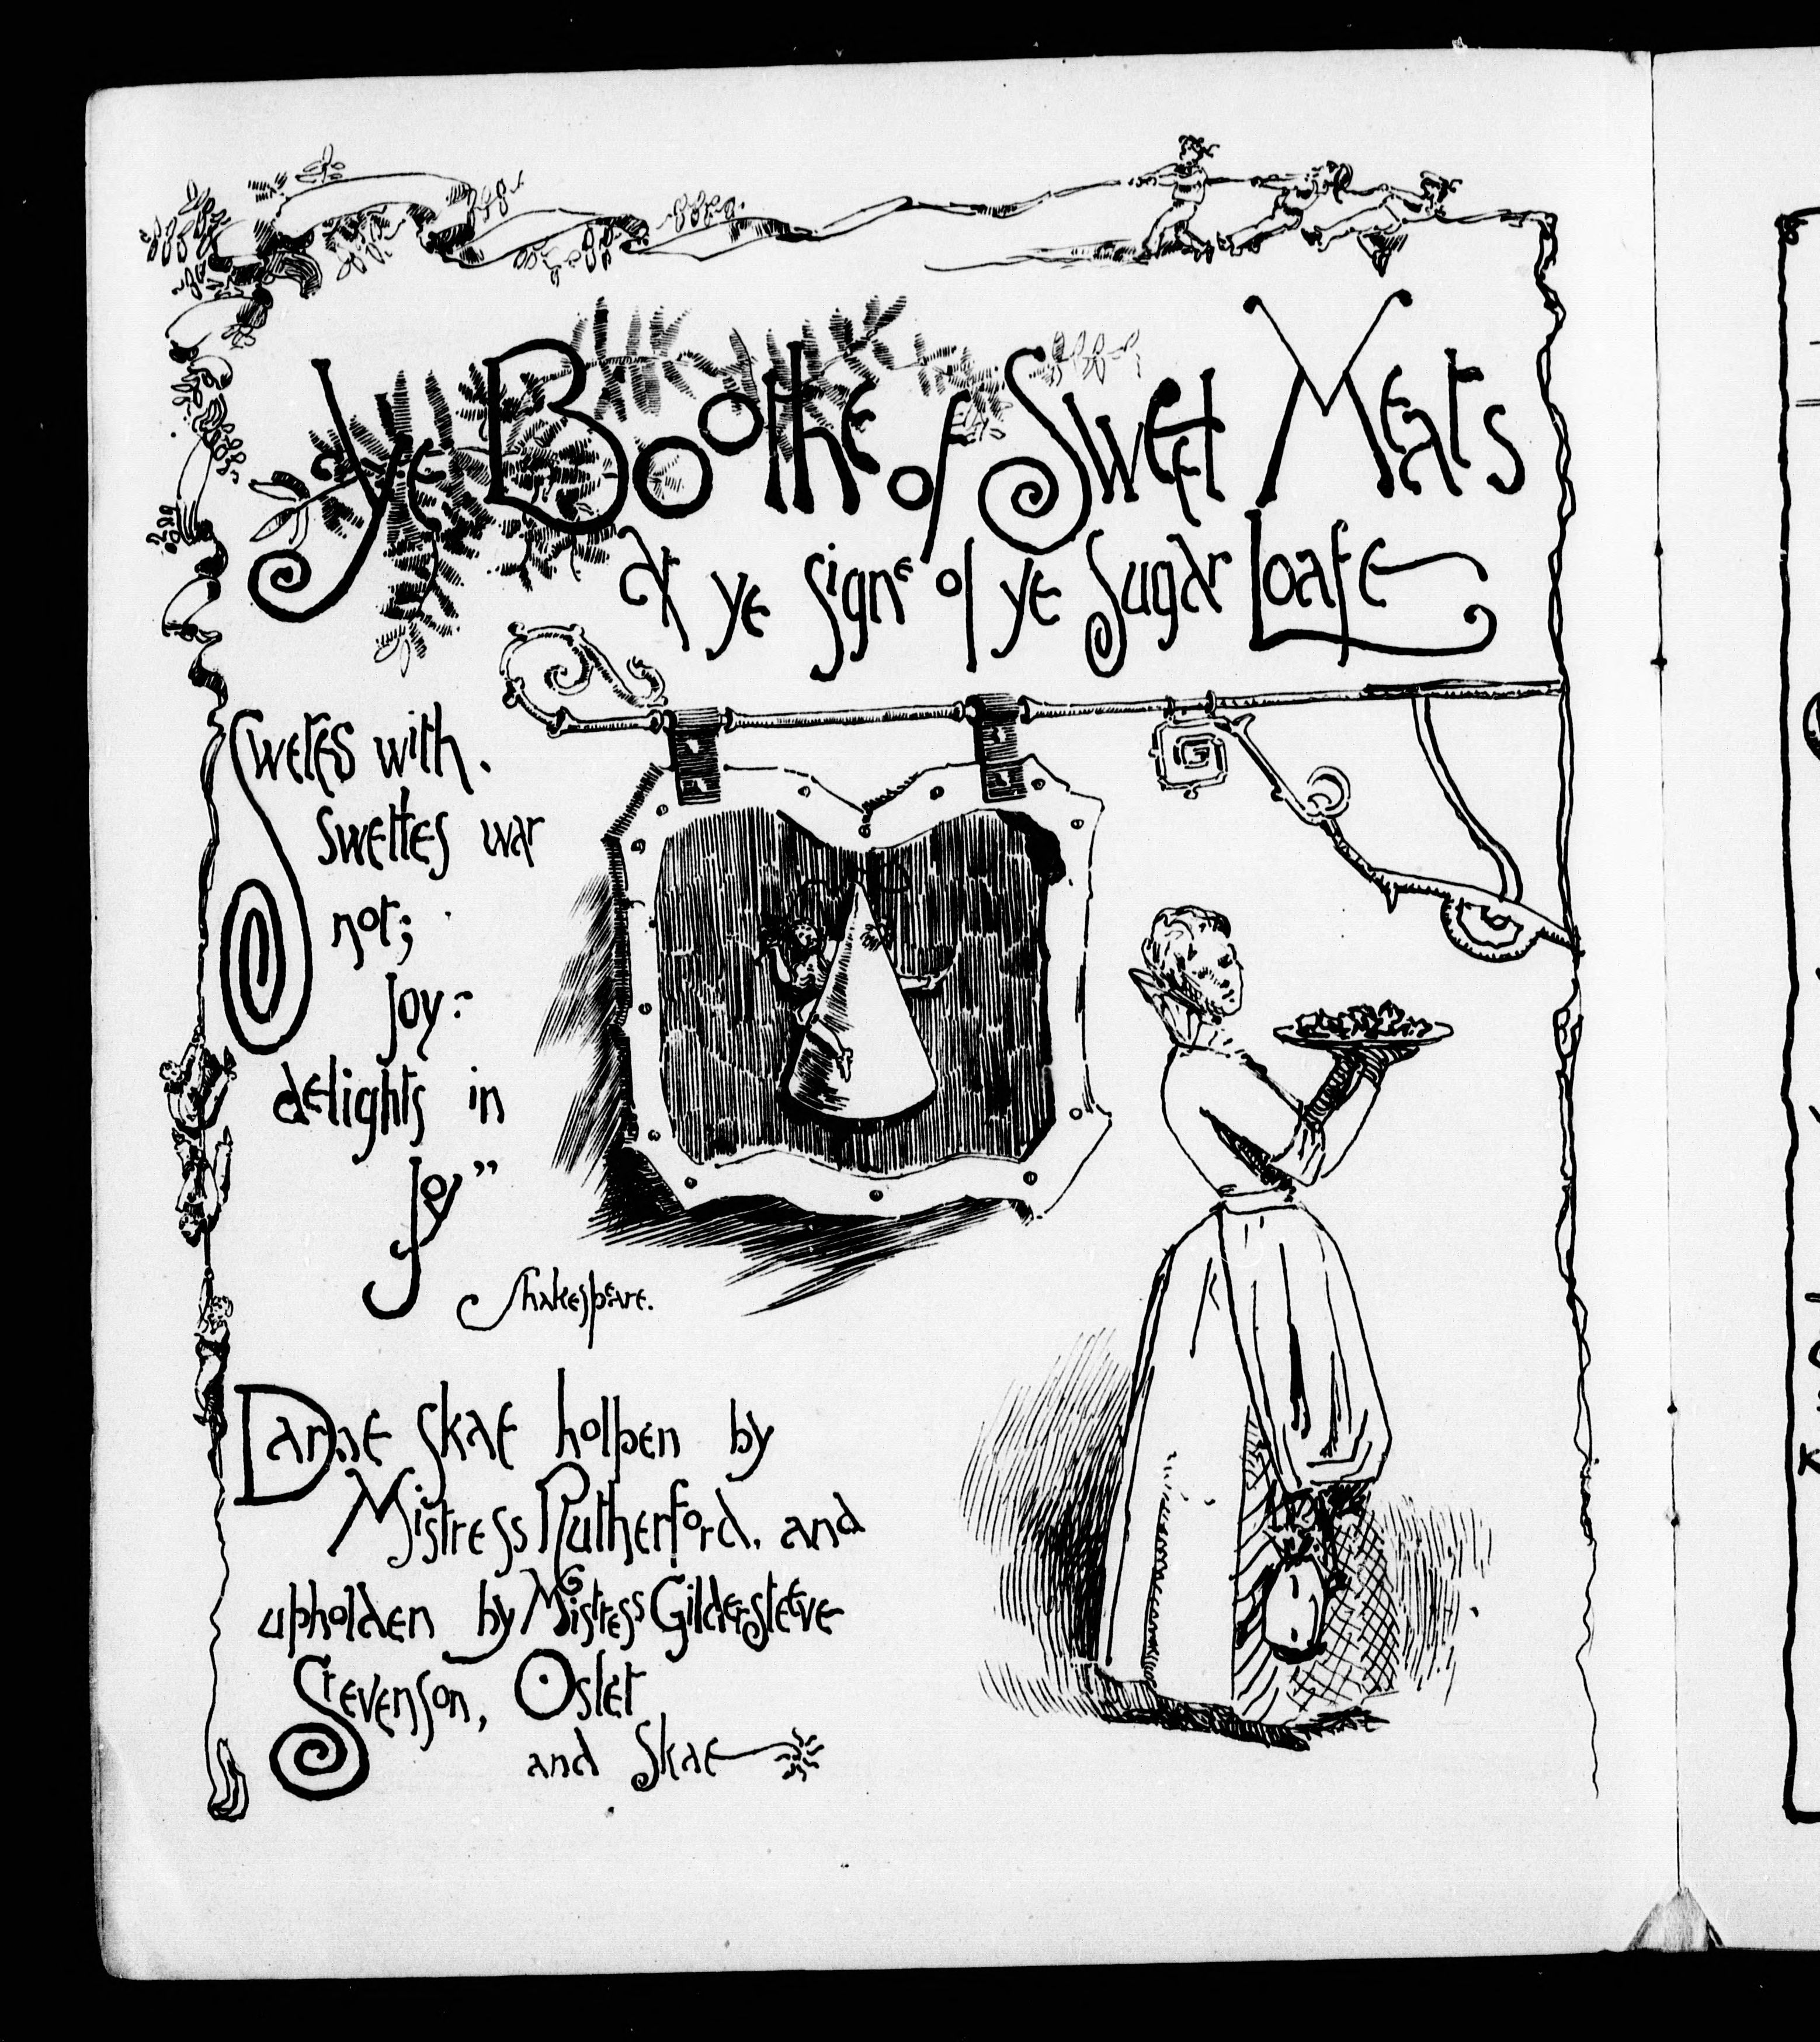 Ye Boothe of Sweet Meats
at ye signe of ye Sugar Loafe
Swetes with
swettes war
not;
Joy:
delights in
Joy”
Shakespeare.
Dame Skae holpen by
Mistress Rutherford, and
upholden by Mistress Gildersleeve
Stevenson, Osler
and Skae